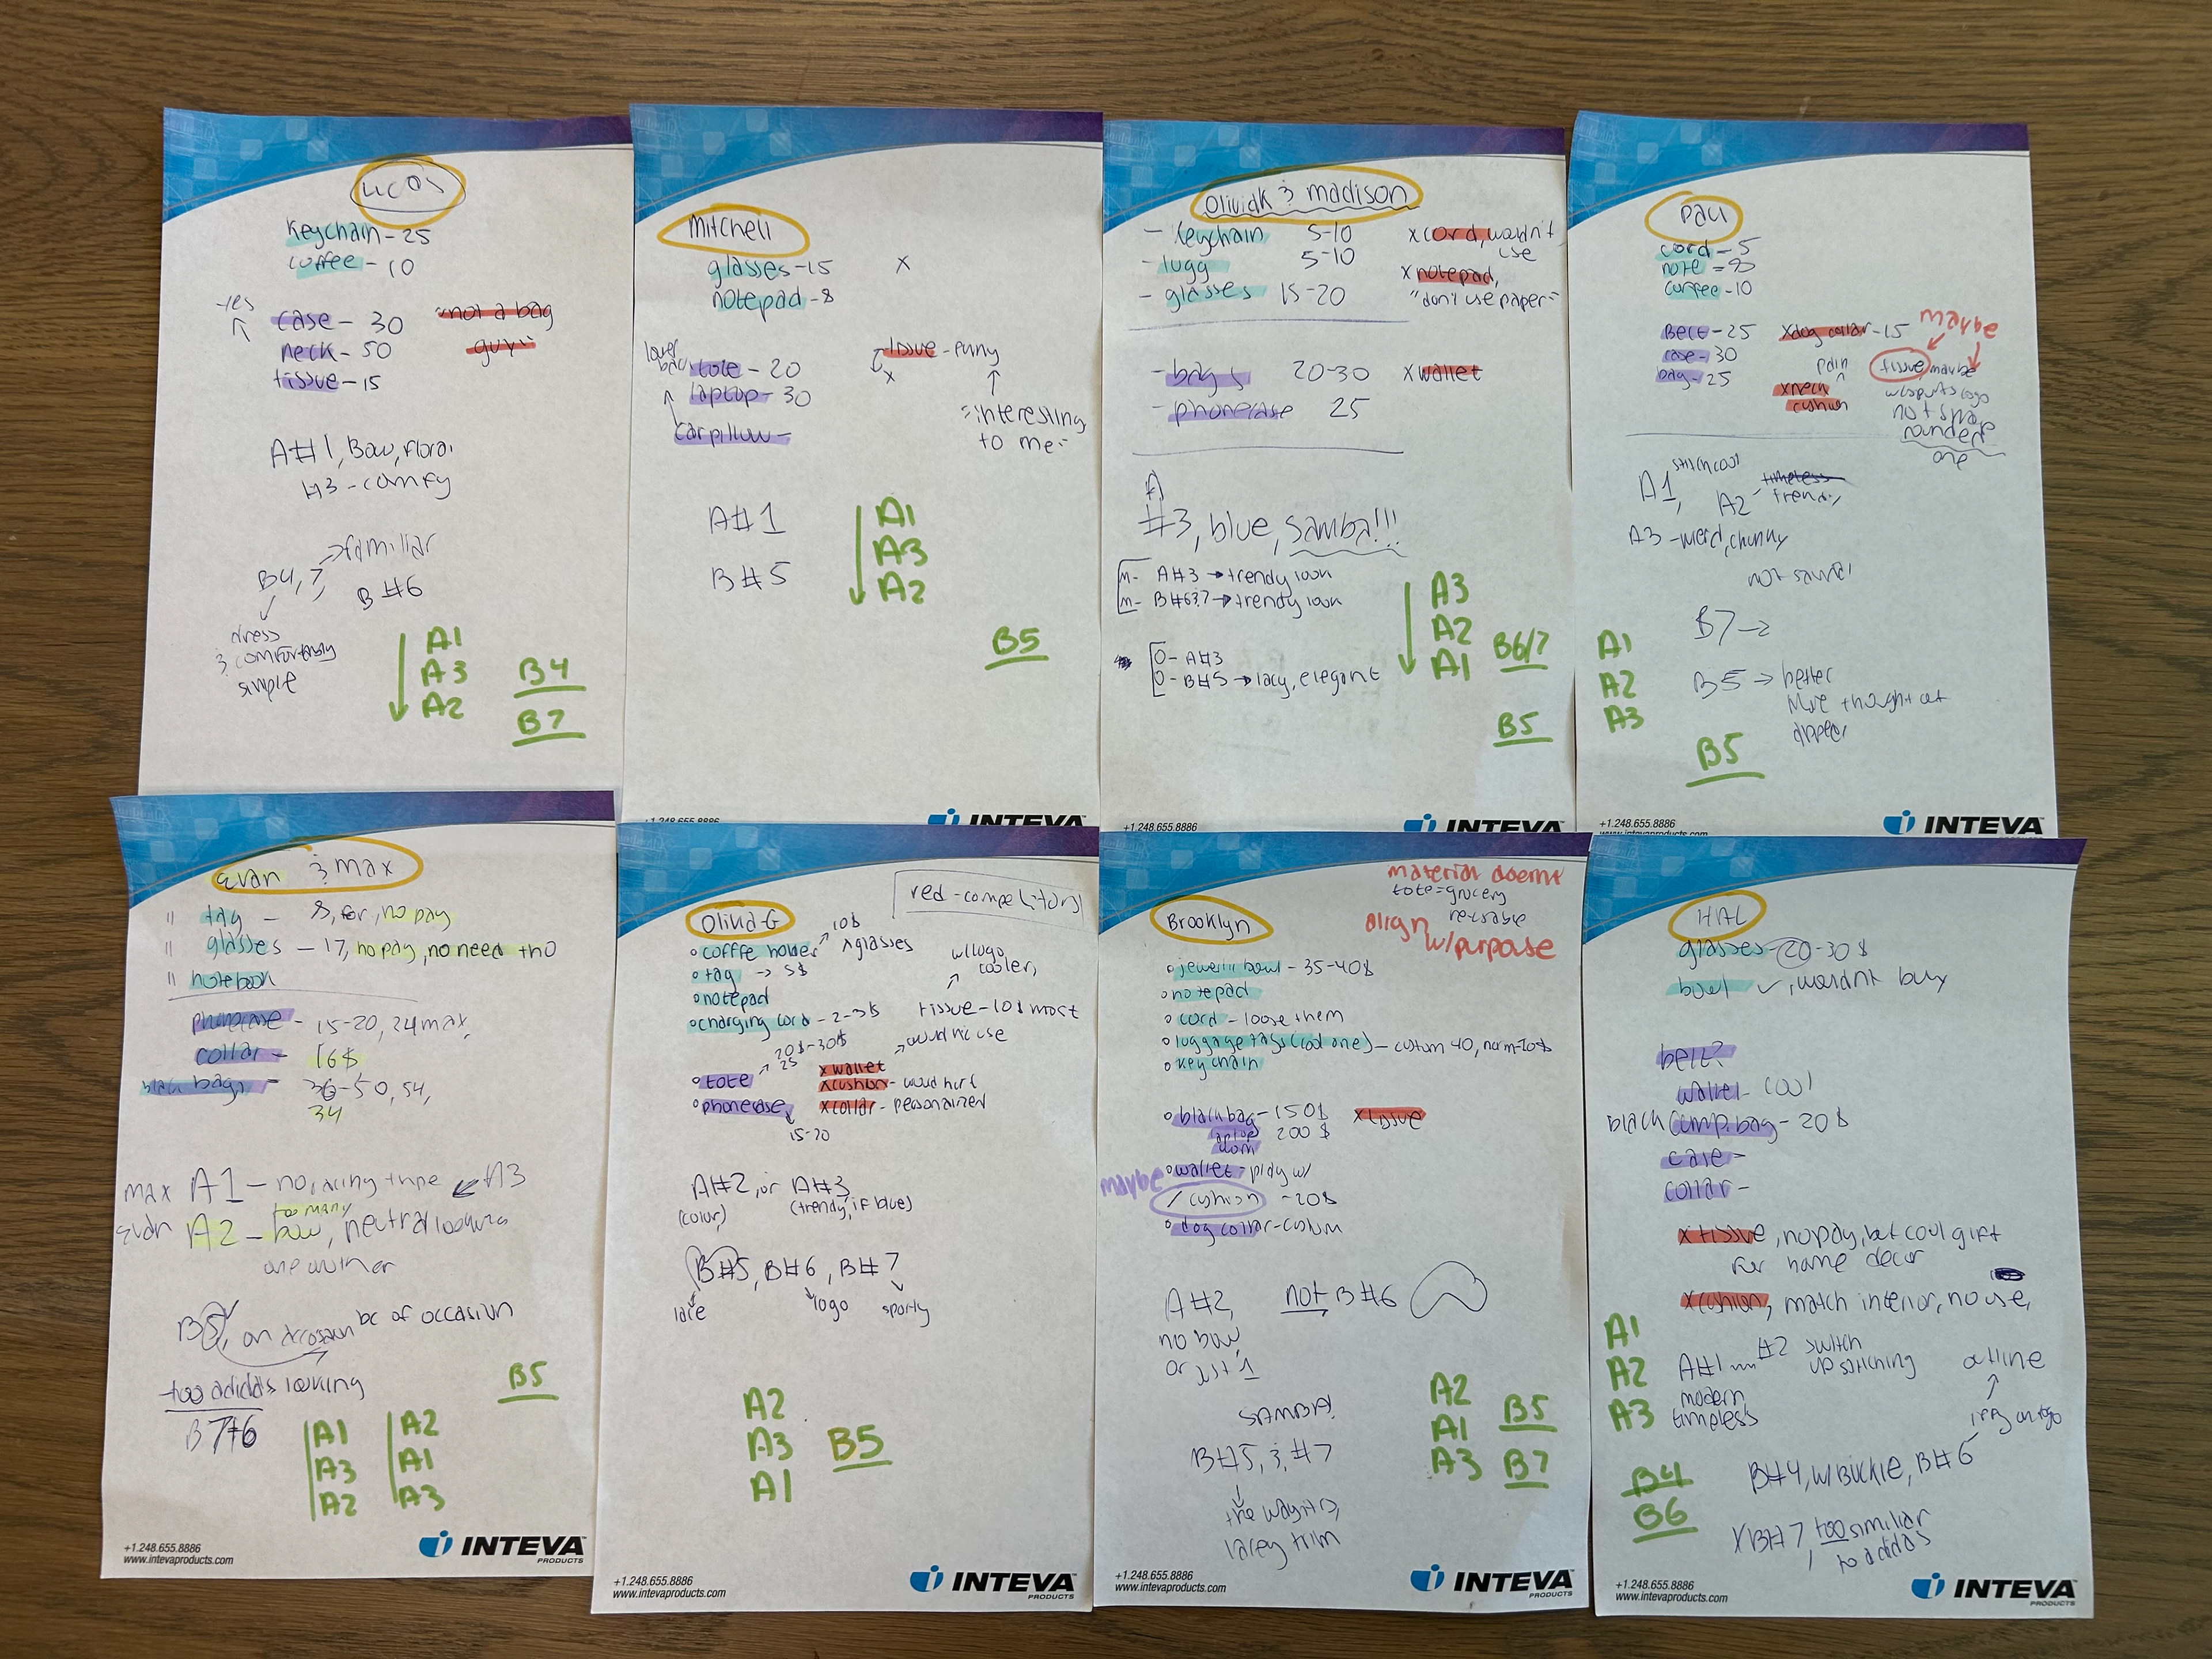 Keychain - 25
coffee - 10
yes
case - 30
"not a bag
guy"
neck - 50
tissue - 15
A#1, Bow, floral
#3 - comfy
familiar
B4, 7
B #6
dress
& comfortably
simple
A1
A3
A2
B4
B7
Mitchell
glasses - 15 x
notepad - 8
lower
back
tote - 20
tissue - funny
x
laptop - 30
car pillow -
"interesting
to me"
A#1
B#5
A1
A3
A2
B5
+1.248.655.8886
INTEVA
OliviaK & madison
- Keychain 5-10
x cord, wouldn't
use
- lugg 5-10
x notepad,
"don't use paper"
- glasses 15-20
- bags 20-30 x wallet
- phonecase 25
A
#3, blue, samba!!!
m- A#3 → trendy look
m- B#6&7 → trendy look
O- A#3
O- B#5 → lacy, elegant
A3
A2
A1
B6/7
B5
+1.248.655.8886
INTEVA
cord - 5
note =
coffee - 10
Belt - 25
case - 30
bag - 25
x dog collar - 15
maybe
pain
x neck
cushion
tissue, maybe
w/sports logo
not shape
rounded
one
A1,
A2
timeless
trendy
A3 - weird, chunky
B7 →
B5 → better
more thought out
A1
A2
A3
B5
+1.248.655.8886
www.intevaproducts.com
INTEVA
Evan & Max
" tag - 8, for, no pay
" glasses - 17, no pay, no need tho
" notebook
phonecase - 15-20, 24 max,
collar - 16$
black bags - 36-50, 54,
34
max A1 - A3
too many
Evan A2 - bow, neutral
one another
B5, bc of occasion
too adidas looking
B 7+6
B5
A1
A3
A2
A2
A1
A3
+1.248.655.8886
www.intevaproducts.com
INTEVA
PRODUCTS
red - competitors
Olivia G
coffee holder
10$
^ glasses
tag → 5$
notepad
charging cord - 2-3$
w/logo
cooler,
tissue - 10$ most
would use
20$-30$
25
tote
phonecase
15-20
x wallet
x cushion - would hurt
x collar - personalized
A#2, or A#3
(color)
(trendy, if blue)
B#5, B#6, B#7
lace
logo
sporty
A2
A3
A1
B5
+1.248.655.8886
www.intevaproducts.com
INTEVA
PRODUCTS
material doesnt
align
w/purpose
tote = grocery
reusable
Brooklyn
jewelry bowl - 35-40$
notepad
cord - loose them
luggage tags (cool one) - custom 40, norm-20$
keychain
black bag - 150$
x tissue
laptop 200$
wallet - play w/
maybe
cushion - 20$
dog collar - custom
A#2,
no bow,
or just 1
not B#6
SAMBA!
B#5, & #7
the way it is,
lacey trim
A2
A1
A3
B5
B7
+1.248.655.8886
www.intevaproducts.com
INTEVA
PRODUCTS
HAL
glasses - 20-30$
bowl ✓, wouldnt buy
belt?
wallet - cool
black comp. bag - 20$
case -
collar -
x tissue, no pay, but cool gift
for home decor
x cushion, match interior, no use,
A1
A2
A3
A#1
#2 switch
up stitching
modern
timeless
outline
B#4, w/Buckle, B#6
B4
B6
x B#7, too similiar
to adidas
+1.248.655.8886
www.intevaproducts.com
INTEVA
PRODUCTS